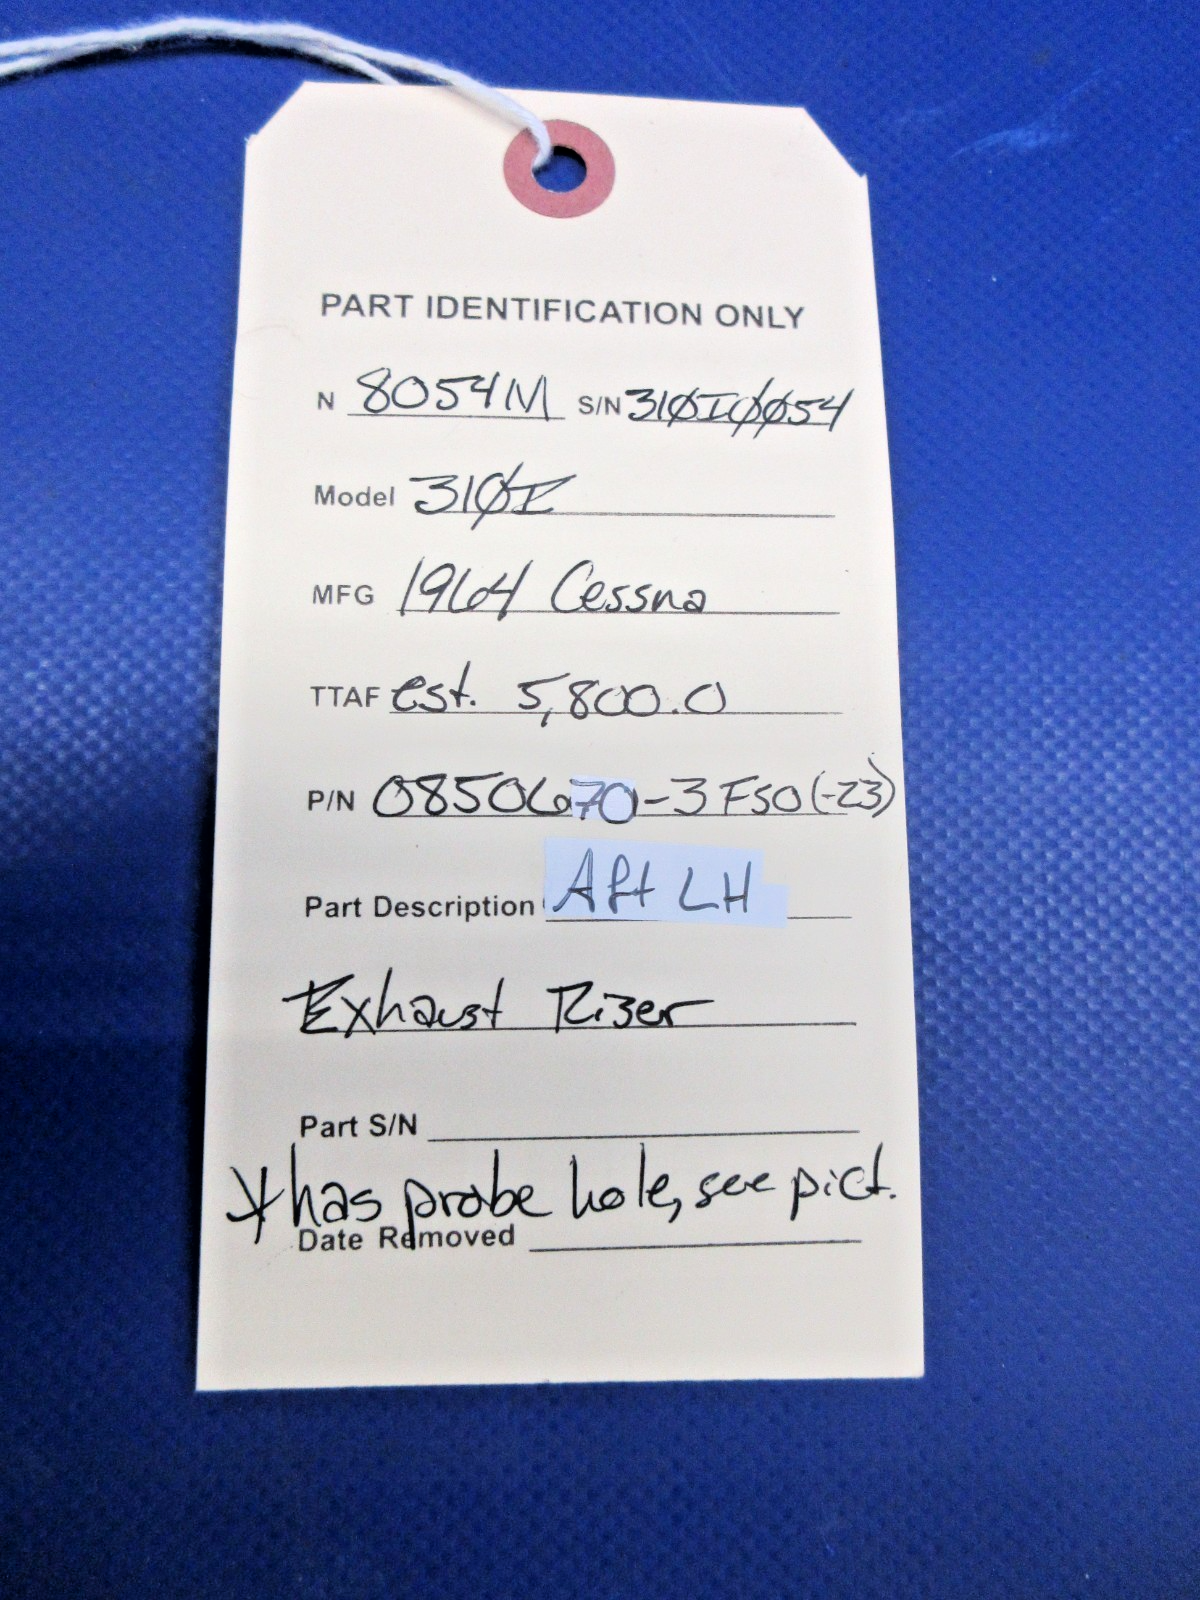 PART IDENTIFICATION ONLY
N 8054M S/N 310I0054
Model 310I
MFG 1964 Cessna
TTAF est. 5,800.0
P/N 0850670-3 FSO (-23)
Part Description Aft LH
Exhaust Rizer
Part S/N
*has probe hole, see pict.
Date Removed